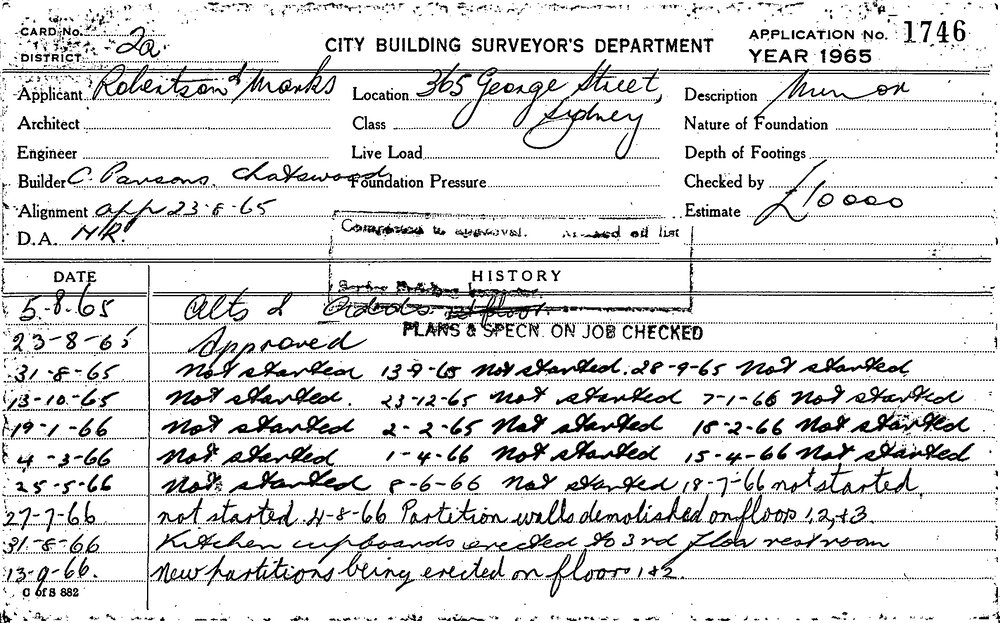 CARD No. 2a
DISTRICT
CITY BUILDING SURVEYOR'S DEPARTMENT
APPLICATION No. 1746
YEAR 1965
Applicant Robertson & Marks Location 365 George Street, Description
Architect Class Sydney Nature of Foundation
Engineer Live Load Depth of Footings
Builder C. Parsons. Chatswood Foundation Pressure Checked by
Alignment app 23-8-65 Estimate £10000
D.A. NR.
list
DATE HISTORY
5-8-65 Alts & Adds 1st floor
PLANS & SPECN. ON JOB CHECKED
23-8-65 Approved
31-8-65 Not started 13-9-65 Not started. 28-9-65 Not started
13-10-65 Not started. 23-12-65 Not started 7-1-66 Not started
19-1-66 Not started 2-2-65 Not started 18-2-66 Not started
4-3-66 Not started 1-4-66 Not started 15-4-66 Not started
25-5-66 Not started 8-6-66 Not started 18-7-66 not started
27-7-66 not started 4-8-66 Partition walls demolished on floors 1,2,+3.
31-8-66 Kitchen cupboards erected to 3rd floor restroom
13-9-66. New partitions being erected on floors 1&2.
C of S 882